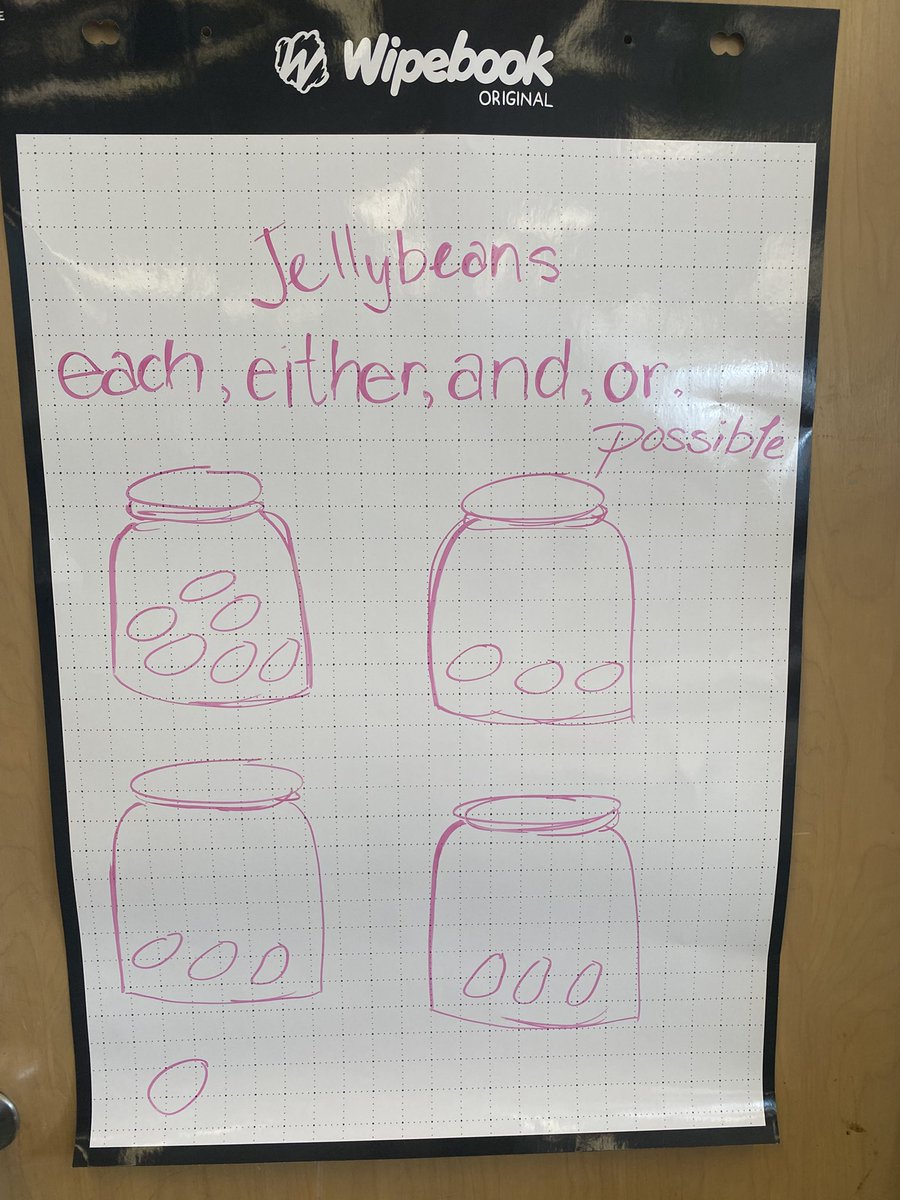 E
Wipebook
ORIGINAL
Jellybeans
each, either, and, or.
possible